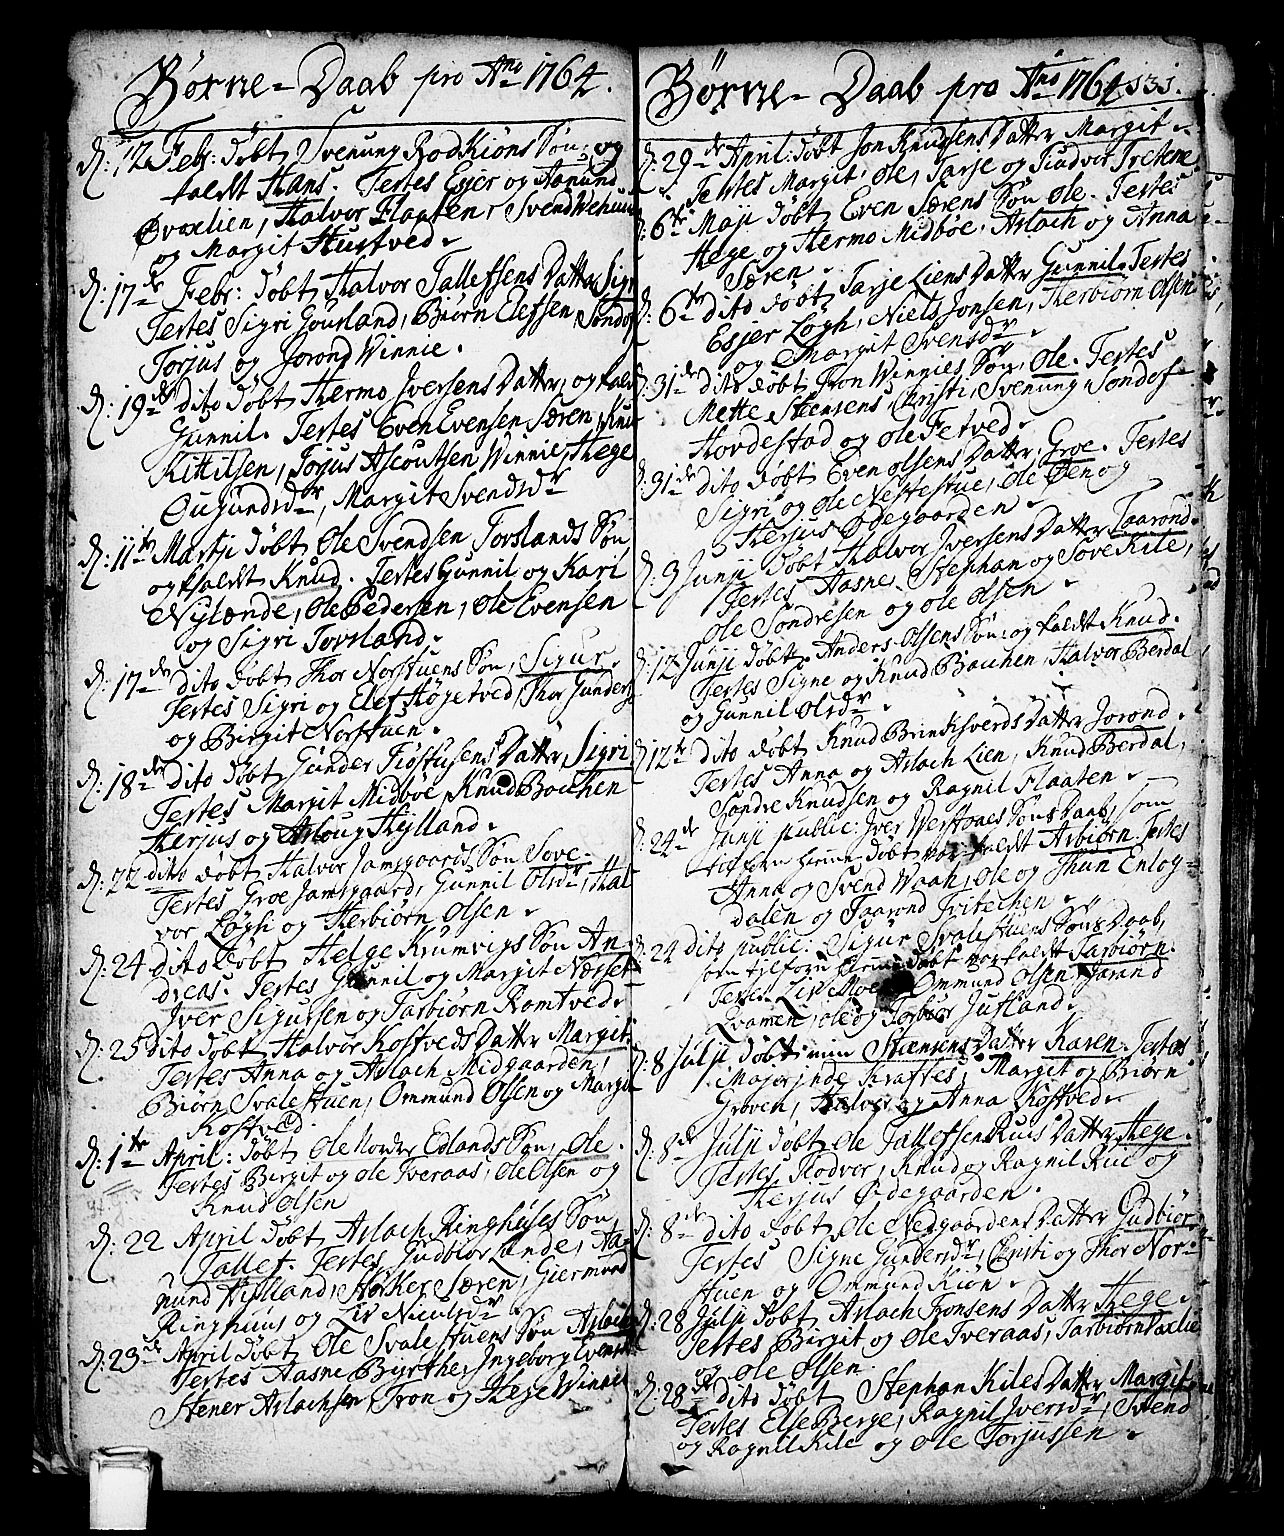 Børne-Daab pro Ao 1764.
D: 12 Febr: døbt Svenung Rodkións Søn, og
kaldt Hans. Testes Esjer og Aamund
Øvrelien, Halvor Flaaten, Svend
og Margit Hustved.
D: 17de Febr: døbt Halvor Tallefsens Datter Sigri
Testes Sigri Gousland, Biørn Elefsen, Sondof
Torjus og Jorond Winnie.
D: 19de dito døbt Hermo Jversens Datter, og kaldt
Gunnil. Testes Even Evensen Særen, Knu
Kittilsen, Torjus Ascoutsen Winnie, Hege
Ougundsdr, Margit Svendsdr
D: 11te Martji døbt Ole Svendsen Torslands Søn
og kaldt Knud. Testes Gunnil og Kari
Nylænde, Ole Pedersen, Ole Evensen
og Sigri Torsland.
D: 17de dito døbt Thor Norstuens Søn, Sigur.
Testes Sigri og Elef Høgetved, Thor Gunders
og Birgit Norstuen.
D: 18de dito døbt Gunder Fiøstusens Datter, Sigri
Testes Margit Midbøe, Knud Bacchen
Herjus og Asloug Hylland.
D: 22 dito døbt Halvor Jamsgaards Søn Sove.
Testes Groe Jamsgaard, Gunnil Olsdr, Hal
vor Løgh og Herbiørn Olsen.
D: 24 dito døbt Helge Krumvigs Søn An-
dreas. Testes Gunnil og Margit Næset
Jver Sigursen og Tarbiørn Romtved.
D: 25 dito døbt Halvor Kostveds Datter Margit.
Testes Anna og Aslach Midgaarden,
Biørn Svalestuen, Ommund Olsen og Margit
Kostved.
D: 1te April: døbt Ole Nordre Edlands Søn, Ole.
Testes Birgit og Ole Tveraas, Ole Olsen og
Knud Olsen
D: 22 April døbt Aslach Ringhuses Søn
Tallef. Testes Gudbiør Lande, Aa-
mund Hylland, Høkker Særen, Giermund
Ringhuus og Liv Nieulsdr.
D: 23de April døbt Ole Svalestuens Søn Aslach
Testes Aasne Byrthe, Ingeborg Evensdr
Stener Aslachsen, Tron og Hege Winnie
Børne-Daab pro Ao 1764 131.
D: 29de April: døbt Jon Knudsens Datter Margit.
Testes Margit, Ole, Tarje og Gudvor Tretene
D: 6te Maji døbt Even Særens Søn Ole. Testes
Hege og Hermo Midbøe, Aslach og Anna
Særen.
D: 6te dito døbt Tarje Liens Datter Gunnil. Testes
Esjer Løgh, Nield Jonsen, Herbiørn Olsen
og Margit Svensdr.
D: 31de dito døbt Tron Winnies Søn, Ole. Testes
Mette Steensens, Christi, Svenung, Sondof
Hovdestad og Ole Fetved.
D: 31de dito døbt Even Olsens Datter, Groe. Testes
Sigri og Ole Nestestue, Ole Teen og
Herjus Ødegaarden.
D: 9 Junji døbt Halvor Jversens Datter, Taarond.
Testes Aasne, Stephan og Sove Kile,
Ole Sondresen og Ole Olsen.
D: 12 Junji døbt Anders Olsens Søn, og kaldt Knud.
Testes Signe og Knud Bacchen, Halvor Berdal
og Gunnil Olsdr.
D: 12te dito døbt Knud Brinksverds Datter Jorond.
Testes Anna og Aslach Lien, Knud Berdal,
Sondre Knudsen og Ragnil Flaaten.
D: 24de Junji public: Jver Westtones Søns Daab, som
tilforn hiemme døbt var, kaldt Asbiørn. Testes
Anna og Svend Waah, Ole og Thun Enlog-
dalen og Taarond Tritechen.
D: 24 dito public: Sigur Svalestuens Søns Daab,
som tilforn hiemme døbt var, kaldt Tarbiørn.
Testes Liv Moe, Ommund Olsen, Jarand
Qvamen, Ole og Torbiør Jutland.
D: 8 Julji døbt min Stænsens Datter Karen. Testes
Majorjnde Kraftes, Margit og Biørn
Groven, Halvor og Anna Kostved.
D: 8de Julji døbt Ole Tallefsen Ruis Datter Hege.
Testes Rodvor, Knud og Ragnil Rue og
Herjus Ødegaarden.
D: 8de dito døbt Ole Nedgaardens Datter Gudbiør
Testes Signe Gundersdr, Christi og Thor Nor-
stuen og Ommund Kiøn.
D: 28 Julji døbt Aslach Tronsens Datter Hege.
Testes Birgit og Ole Tveraas, Tarbiørn
og Ole Olsen.
D: 28de dito døbt Stephan Kiles Datter Margit
Testes Else Berge, Ragnil Jversdr, Svend
og Ragnil Kile og Ole Torjussen.